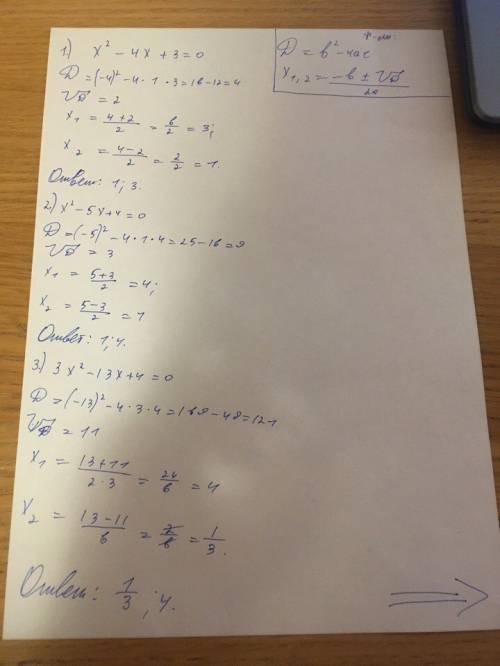 1) x² - 4x + 3 = 0
D = (-4)² - 4 · 1 · 3 = 16 - 12 = 4
√D = 2
x₁ = (4+2)/2 = 6/2 = 3;
x₂ = (4-2)/2 = 2/2 = 1.
Ответ: 1; 3.
2) x² - 5x + 4 = 0
D = (-5)² - 4 · 1 · 4 = 25 - 16 = 9
√D = 3
x₁ = (5+3)/2 = 4;
x₂ = (5-3)/2 = 1
Ответ: 1; 4.
3.) 3x² - 13x + 4 = 0
D = (-13)² - 4 · 3 · 4 = 169 - 48 = 121
√D = 11
x₁ = (13+11)/(2·3) = 24/6 = 4
x₂ = (13-11)/6 = 2/6 = 1/3.
Ответ: 1/3; 4.
D = b² - 4ac
x₁,₂ = (-b ± √D)/2a